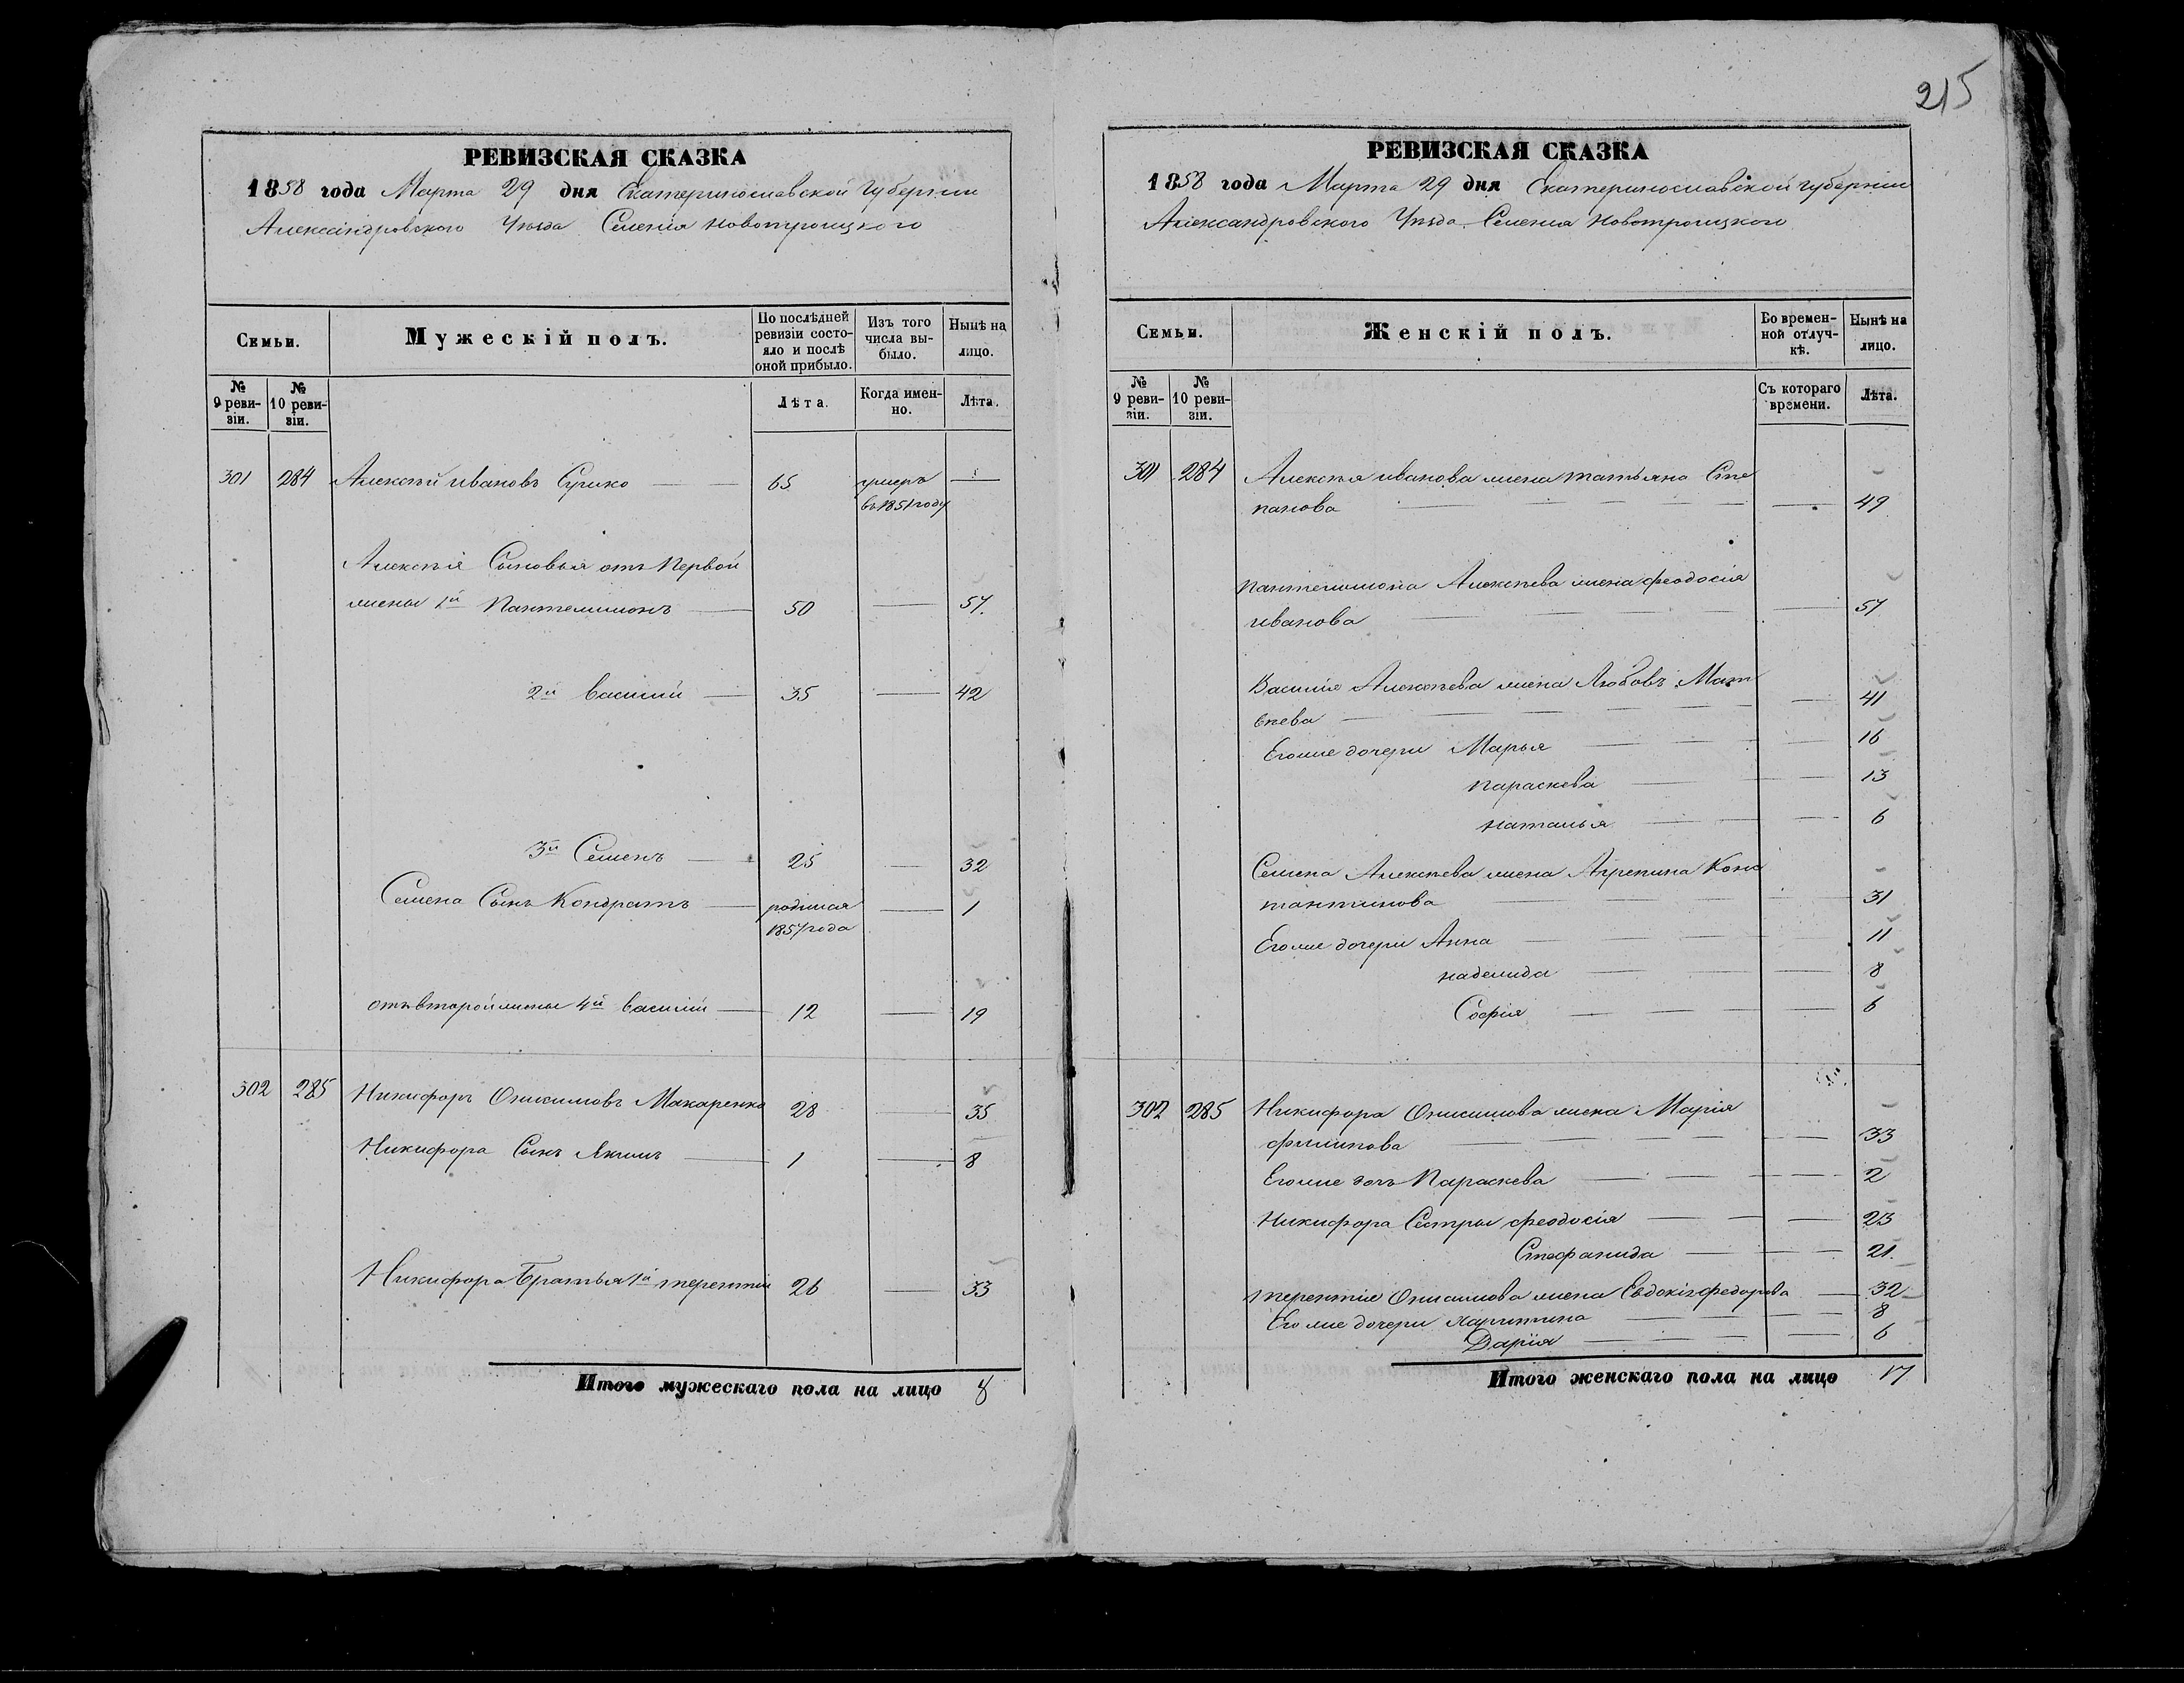 215
РЕВИЗСКАЯ СКАЗКА
1858 года Марта 29 дня Екатеринославской Губерніи
Александровского Уѣзда Селенія Новотроицкого
Семьи.
Мужескій полъ.
По послѣдней ревизіи состояло и послѣ оной прибыло.
Изъ того числа выбыло.
Нынѣ на лицо.
№ 9 ревизіи.
№ 10 ревизіи.
Лѣта.
Когда именно.
Лѣта.
301 284 Алексѣй Ивановъ 65 умеръ —
въ 1851 году
Алексѣя Сыновья отъ Первой
жены 1й Пантелимонъ — 50 — 57.
2й Василий — 35 — 42
3й Семенъ — 25 — 32
Семена Сынъ Кондратъ — родился — 1
1857 года
отъ второй жены 4й Василий — 12 — 19
302 285 Никифоръ Онисимовъ Макаренко 28 — 35
Никифора Сынъ Якимъ — 1 — 8
Никифора Братья 1й Терентий 26 — 33
Итого мужескаго пола на лицо 8
РЕВИЗСКАЯ СКАЗКА
1858 года Марта 29 дня Екатеринославской губерніи
Александровского Уѣзда Селенія Новотроицкого
Семьи.
Женскій полъ.
Во временной отлучкѣ.
Нынѣ на лицо.
№ 9 ревизіи.
№ 10 ревизіи.
Съ котораго времени.
Лѣта.
301 284 Алексѣя Иванова жена Татьяна Сте
панова — — 49
Пантелимона Алексѣева жена Феодосія
Иванова — — 57
Василия Алексѣева жена Любовь Мат
вѣева — — 41
Его же дочери Марья — — 16
Параскева — — 13
Наталья — — 6
Семена Алексѣева жена Агрепина Конс
тантинова — — 31
Его же дочери Анна — — 11
Надежда — — 8
Софія — — 6
302 285 Никифора Онисимова жена Марія
Филипова — — 33
Его же дочь Параскева — — 2
Никифора Сестры Феодосія — — 23
Стефанида — — 21.
Терентия Онисимова жена Евдокія Федорова — 32
Его же дочери Харитина — — 8
Дарія — — 6
Итого женскаго пола на лицо 17